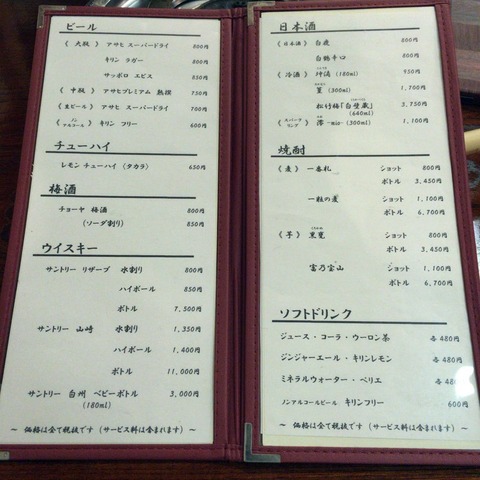 ビール
《 大瓶 》 アサヒ スーパードライ 800円
キリン ラガー 800円
サッポロ エビス 850円
《 中瓶 》 アサヒプレミアム 熟撰 750円
《生ビール》 アサヒ スーパードライ 700円
《 ノンアルコール 》 キリン フリー 600円
チューハイ
レモン チューハイ (タカラ) 650円
梅酒
チョーヤ 梅酒 800円
(ソーダ割り) 850円
ウイスキー
サントリー リザーブ 水割り 800円
ハイボール 850円
ボトル 7,500円
サントリー 山崎 水割り 1,350円
ハイボール 1,400円
ボトル 11,000円
サントリー 白州 ベビーボトル 3,000円
(180ml)
~ 価格は全て税抜です (サービス料は含まれます) ~
日本酒
《日本酒》 白鹿 800円
白鶴辛口 800円
《冷酒》 (180ml) 950円
(300ml) 1,700円
松竹梅「白壁蔵」 3,750円
(640ml)
《 スパークリング 》 澪 -mio- (300ml) 1,100円
焼酎
《麦》 一番札 ショット 800円
ボトル 3,450円
一粒の麦 ショット 1,100円
ボトル 6,700円
《芋》 黒寛 ショット 800円
ボトル 3,450円
富乃宝山 ショット 1,100円
ボトル 6,700円
ソフトドリンク
ジュース・コーラ・ウーロン茶 各480円
ジンジャーエール・キリンレモン 各480円
ミネラルウォーター・ペリエ 各480円
ノンアルコールビール キリンフリー 600円
~ 価格は全て税抜です (サービス料は含まれます) ~